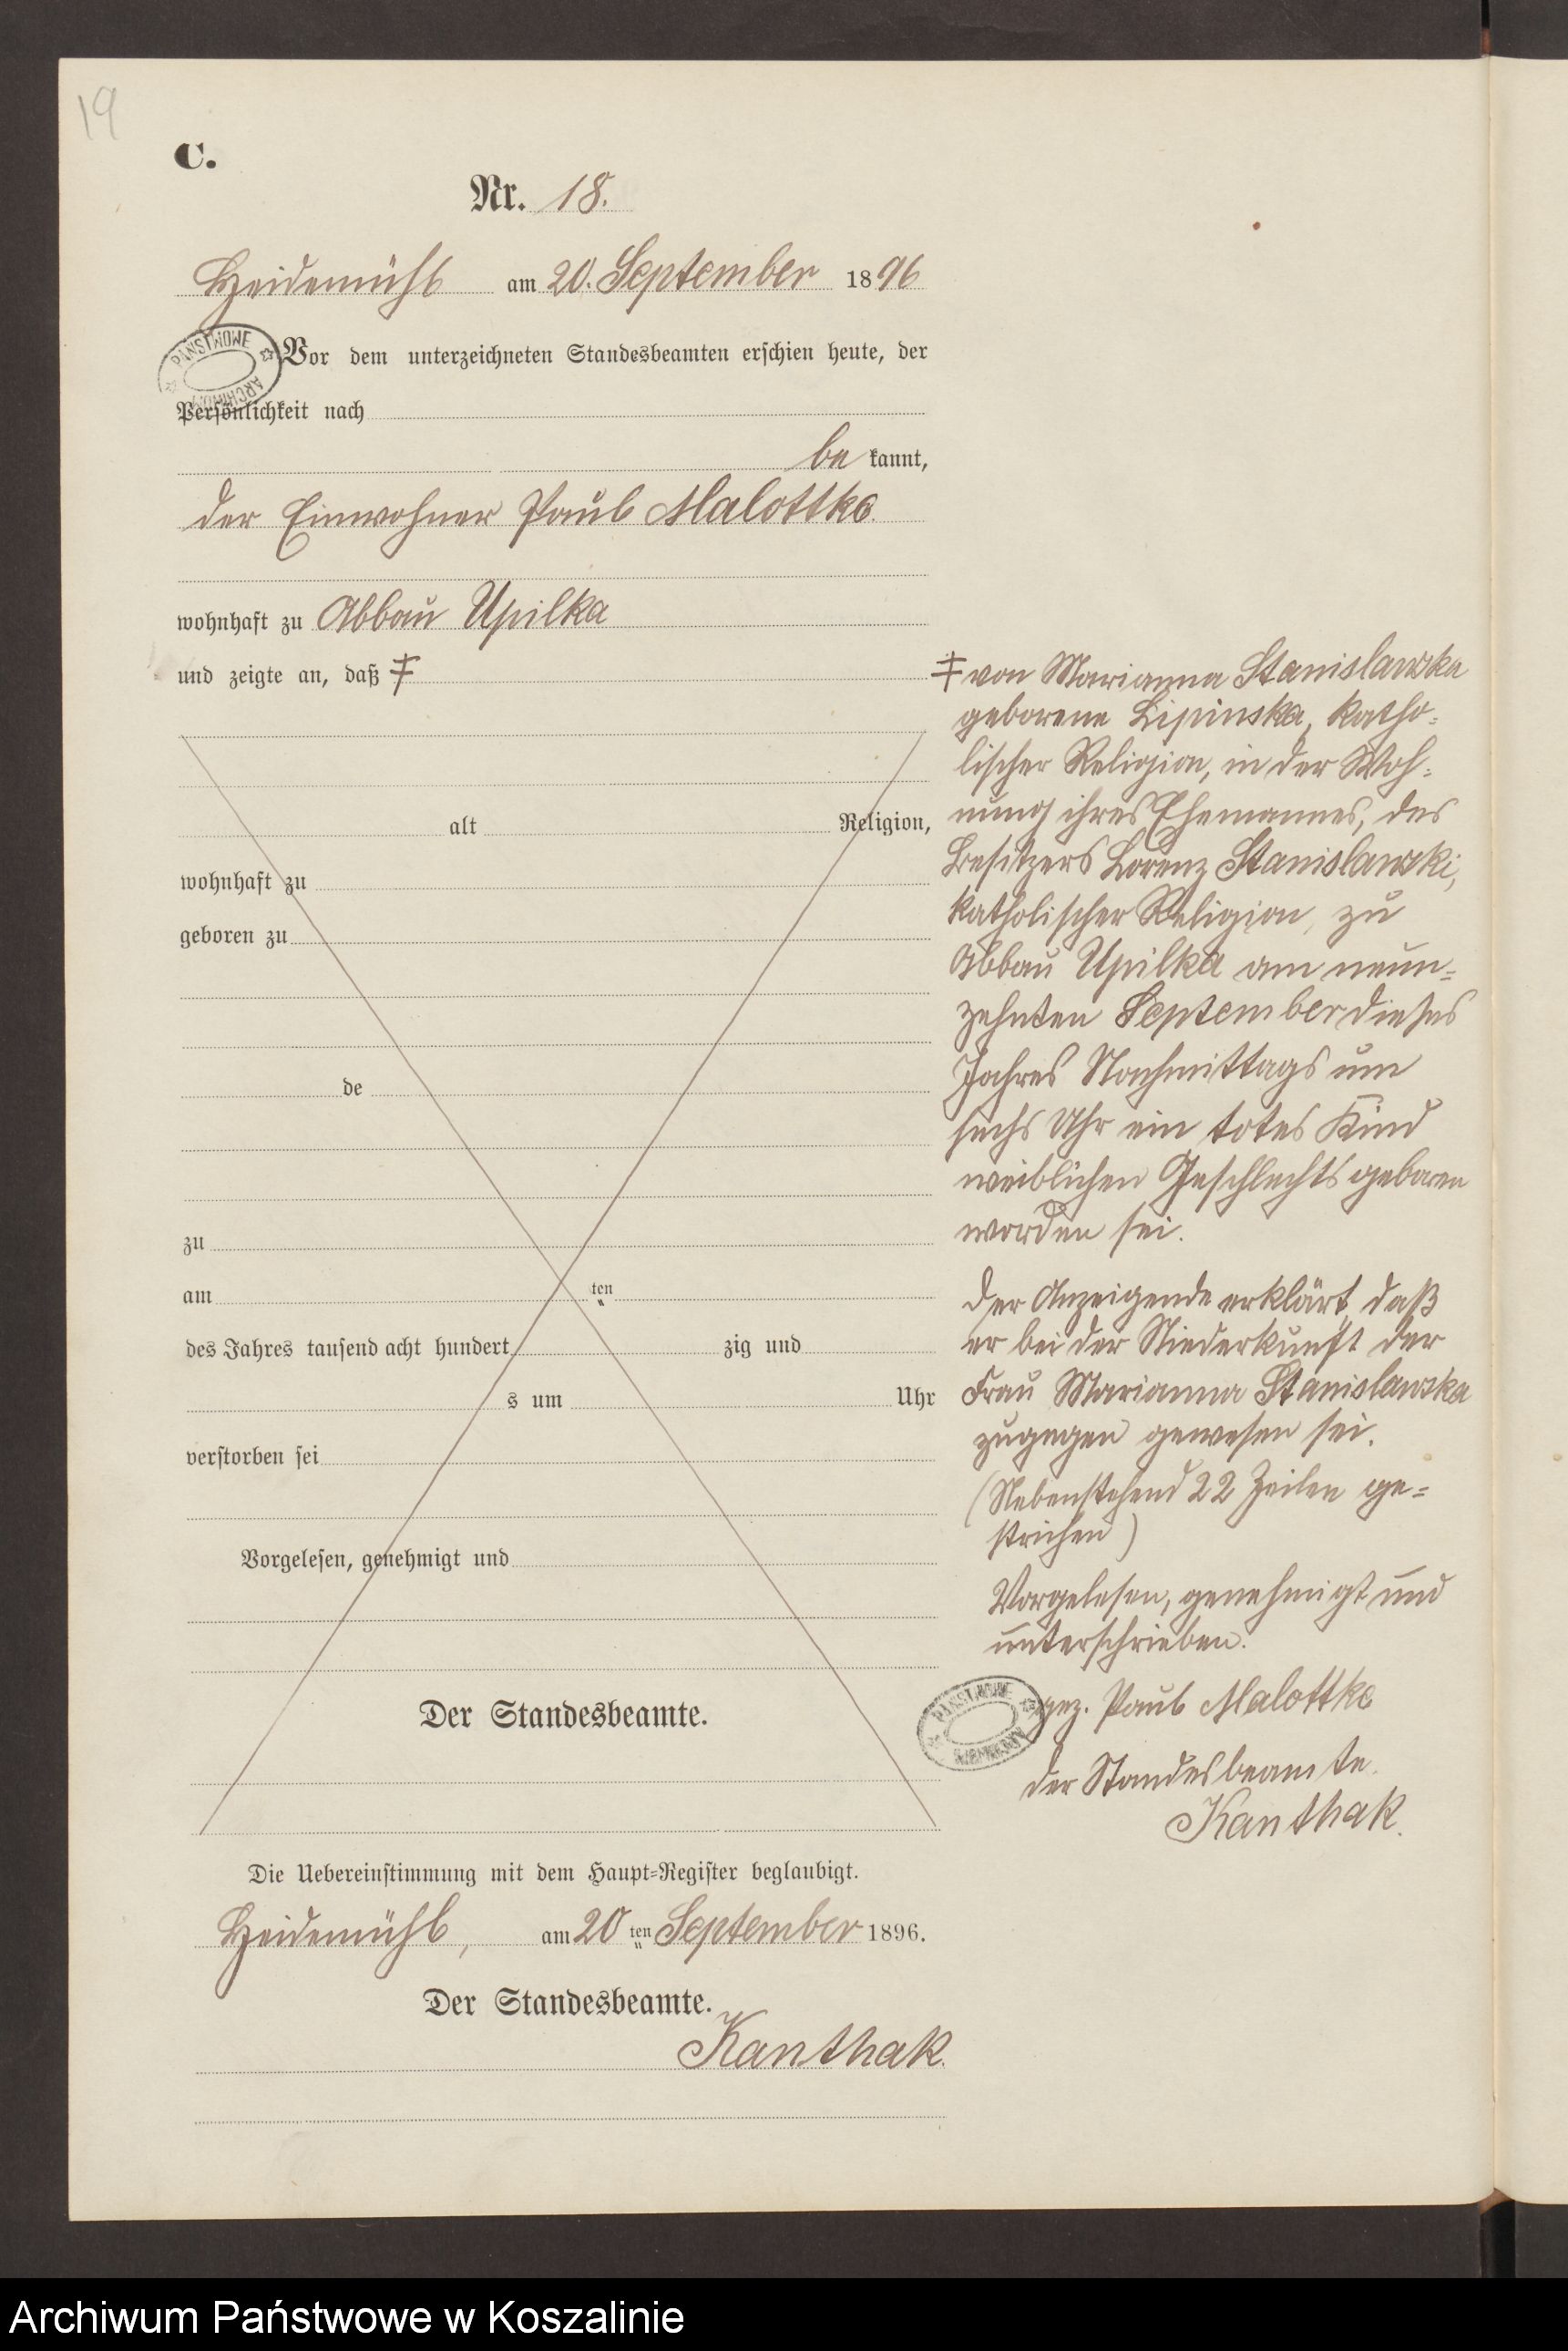 19
C.
Nr. 18.
Heidemühl am 20. September 1896
Vor dem unterzeichneten Standesbeamten erschien heute, der
Persönlichkeit nach
be kannt,
der Einwohner Paul Malottke.
wohnhaft zu Abbau Upilka
und zeigte an, daß ‡
alt Religion,
wohnhaft zu
geboren zu
de
zu
am ten
des Jahres tausend acht hundert zig und
s um Uhr
verstorben sei
Vorgelesen, genehmigt und
Der Standesbeamte.
‡ von Marianna Stanislawska
geborene Lipinska, katho-
lischer Religion, in der Woh-
nung ihres Ehemannes, des
Besitzers Lorenz Stanislawski,
katholischer Religion, zu
Abbau Upilka am neun-
zehnten September dieses
Jahres Nachmittags um
sechs Uhr ein totes Kind
weiblichen Geschlechts geboren
worden sei.
Der Anzeigende erklärt, daß
er bei der Niederkunft der
Frau Marianna Stanislawska
zugegen gewesen sei.
(Nebenstehend 22 Zeilen ge-
strichen)
Vorgelesen, genehmigt und
unterschrieben.
gez. Paul Malottke
Der Standesbeamte.
Kanthak.
Die Uebereinstimmung mit dem Haupt-Register beglaubigt.
Heidemühl, am 20 ten September 1896.
Der Standesbeamte.
Kanthak.
PANSTWOWE ARCHIWUM
PANSTWOWE ARCHIWUM
Archiwum Państwowe w Koszalinie